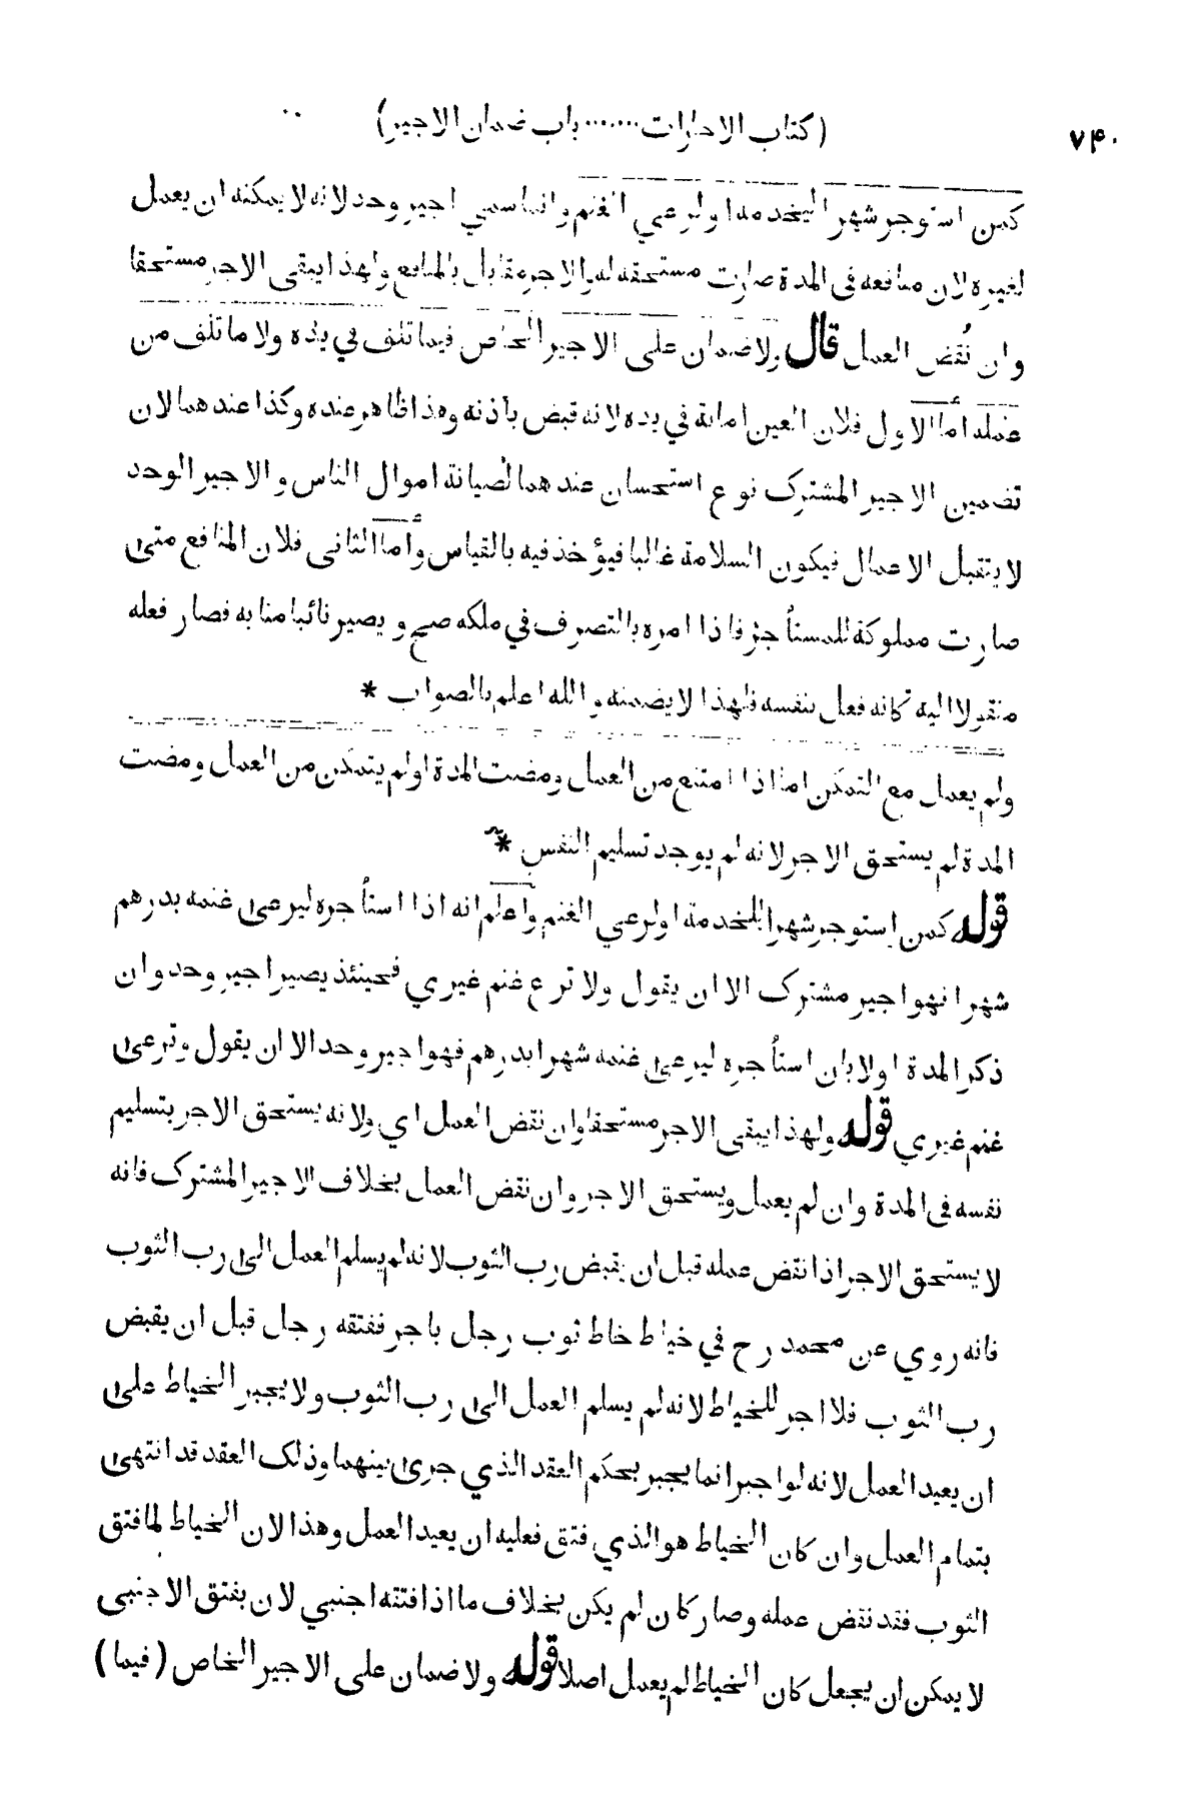 ۷۴۰
(كتاب الاجارات ...... باب ضمان الاجير)
كمن استوجر شهرا للخدمة او لرعي الغنم وانما سمي اجير وحد لانه لا يمكنه ان يعمل
لغيره لان منافعه فى المدة صارت مستحقه له والاجر مقابل بالمنافع ولهذا يبقى الاجر مستحقا
وان نُقض العمل قال ولا ضمان على الاجير الخاص فيما تلف في يده ولا ما تلف من
عمله اما الاول فلان العين امانة في يده لانه قبض باذنه وهذا ظاهر عنده وكذا عندهما لان
تضمين الاجير المشترك نوع استحسان عندهما لصيانة اموال الناس والاجير الوحد
لا يتقبل الاعمال فيكون السلامة غالبا فيؤخذ فيه بالقياس وأما الثانى فلان المنافع متى
صارت مملوكة للمستأجر فاذا امره بالتصرف في ملكه صح ويصير نائبا منابه فصار فعله
منقولا اليه كانه فعل بنفسه فلهذا لا يضمنه والله اعلم بالصواب *
ولم يعمل مع التمكن اما اذا امتنع من العمل ومضت المدة او لم يتمكن من العمل ومضت
المدة لم يستحق الاجر لانه لم يوجد تسليم النفس *
قوله كمن استوجر شهرا للخدمة او لرعي الغنم وأعلم انه اذا استأجره ليرعى غنمه بدرهم
شهرا فهو اجير مشترك الا ان يقول ولا ترع غنم غيري فحينئذ يصير اجير وحد وان
ذكر المدة اولا بان استأجره ليرعى غنمه شهرا بدرهم فهو اجير وحد الا ان يقول وترعى
غنم غيري قوله ولهذا يبقى الاجر مستحقا وان نقض العمل اي ولانه يستحق الاجر بتسليم
نفسه فى المدة وان لم يعمل ويستحق الاجر وان نقض العمل بخلاف الاجير المشترك فانه
لا يستحق الاجر اذا نقض عمله قبل ان يقبض رب الثوب لانه لم يسلم العمل الى رب الثوب
فانه روي عن محمد رح في خياط خاط ثوب رجل باجر ففتقه رجل قبل ان يقبض
رب الثوب فلا اجر للخياط لانه لم يسلم العمل الى رب الثوب ولا يجبر الخياط على
ان يعيد العمل لانه لو اجبر انما يجبر بحكم العقد الذي جرى بينهما وذلك العقد قد انتهى
بتمام العمل وان كان الخياط هو الذي فتق فعليه ان يعيد العمل وهذا لان الخياط لما فتق
الثوب فقد نقض عمله وصار كان لم يكن بخلاف ما اذا فتقه اجنبي لان بفتق الاجنبى
لا يمكن ان يجعل كان الخياط لم يعمل اصلا قوله ولا ضمان على الاجير الخاص (فيما)